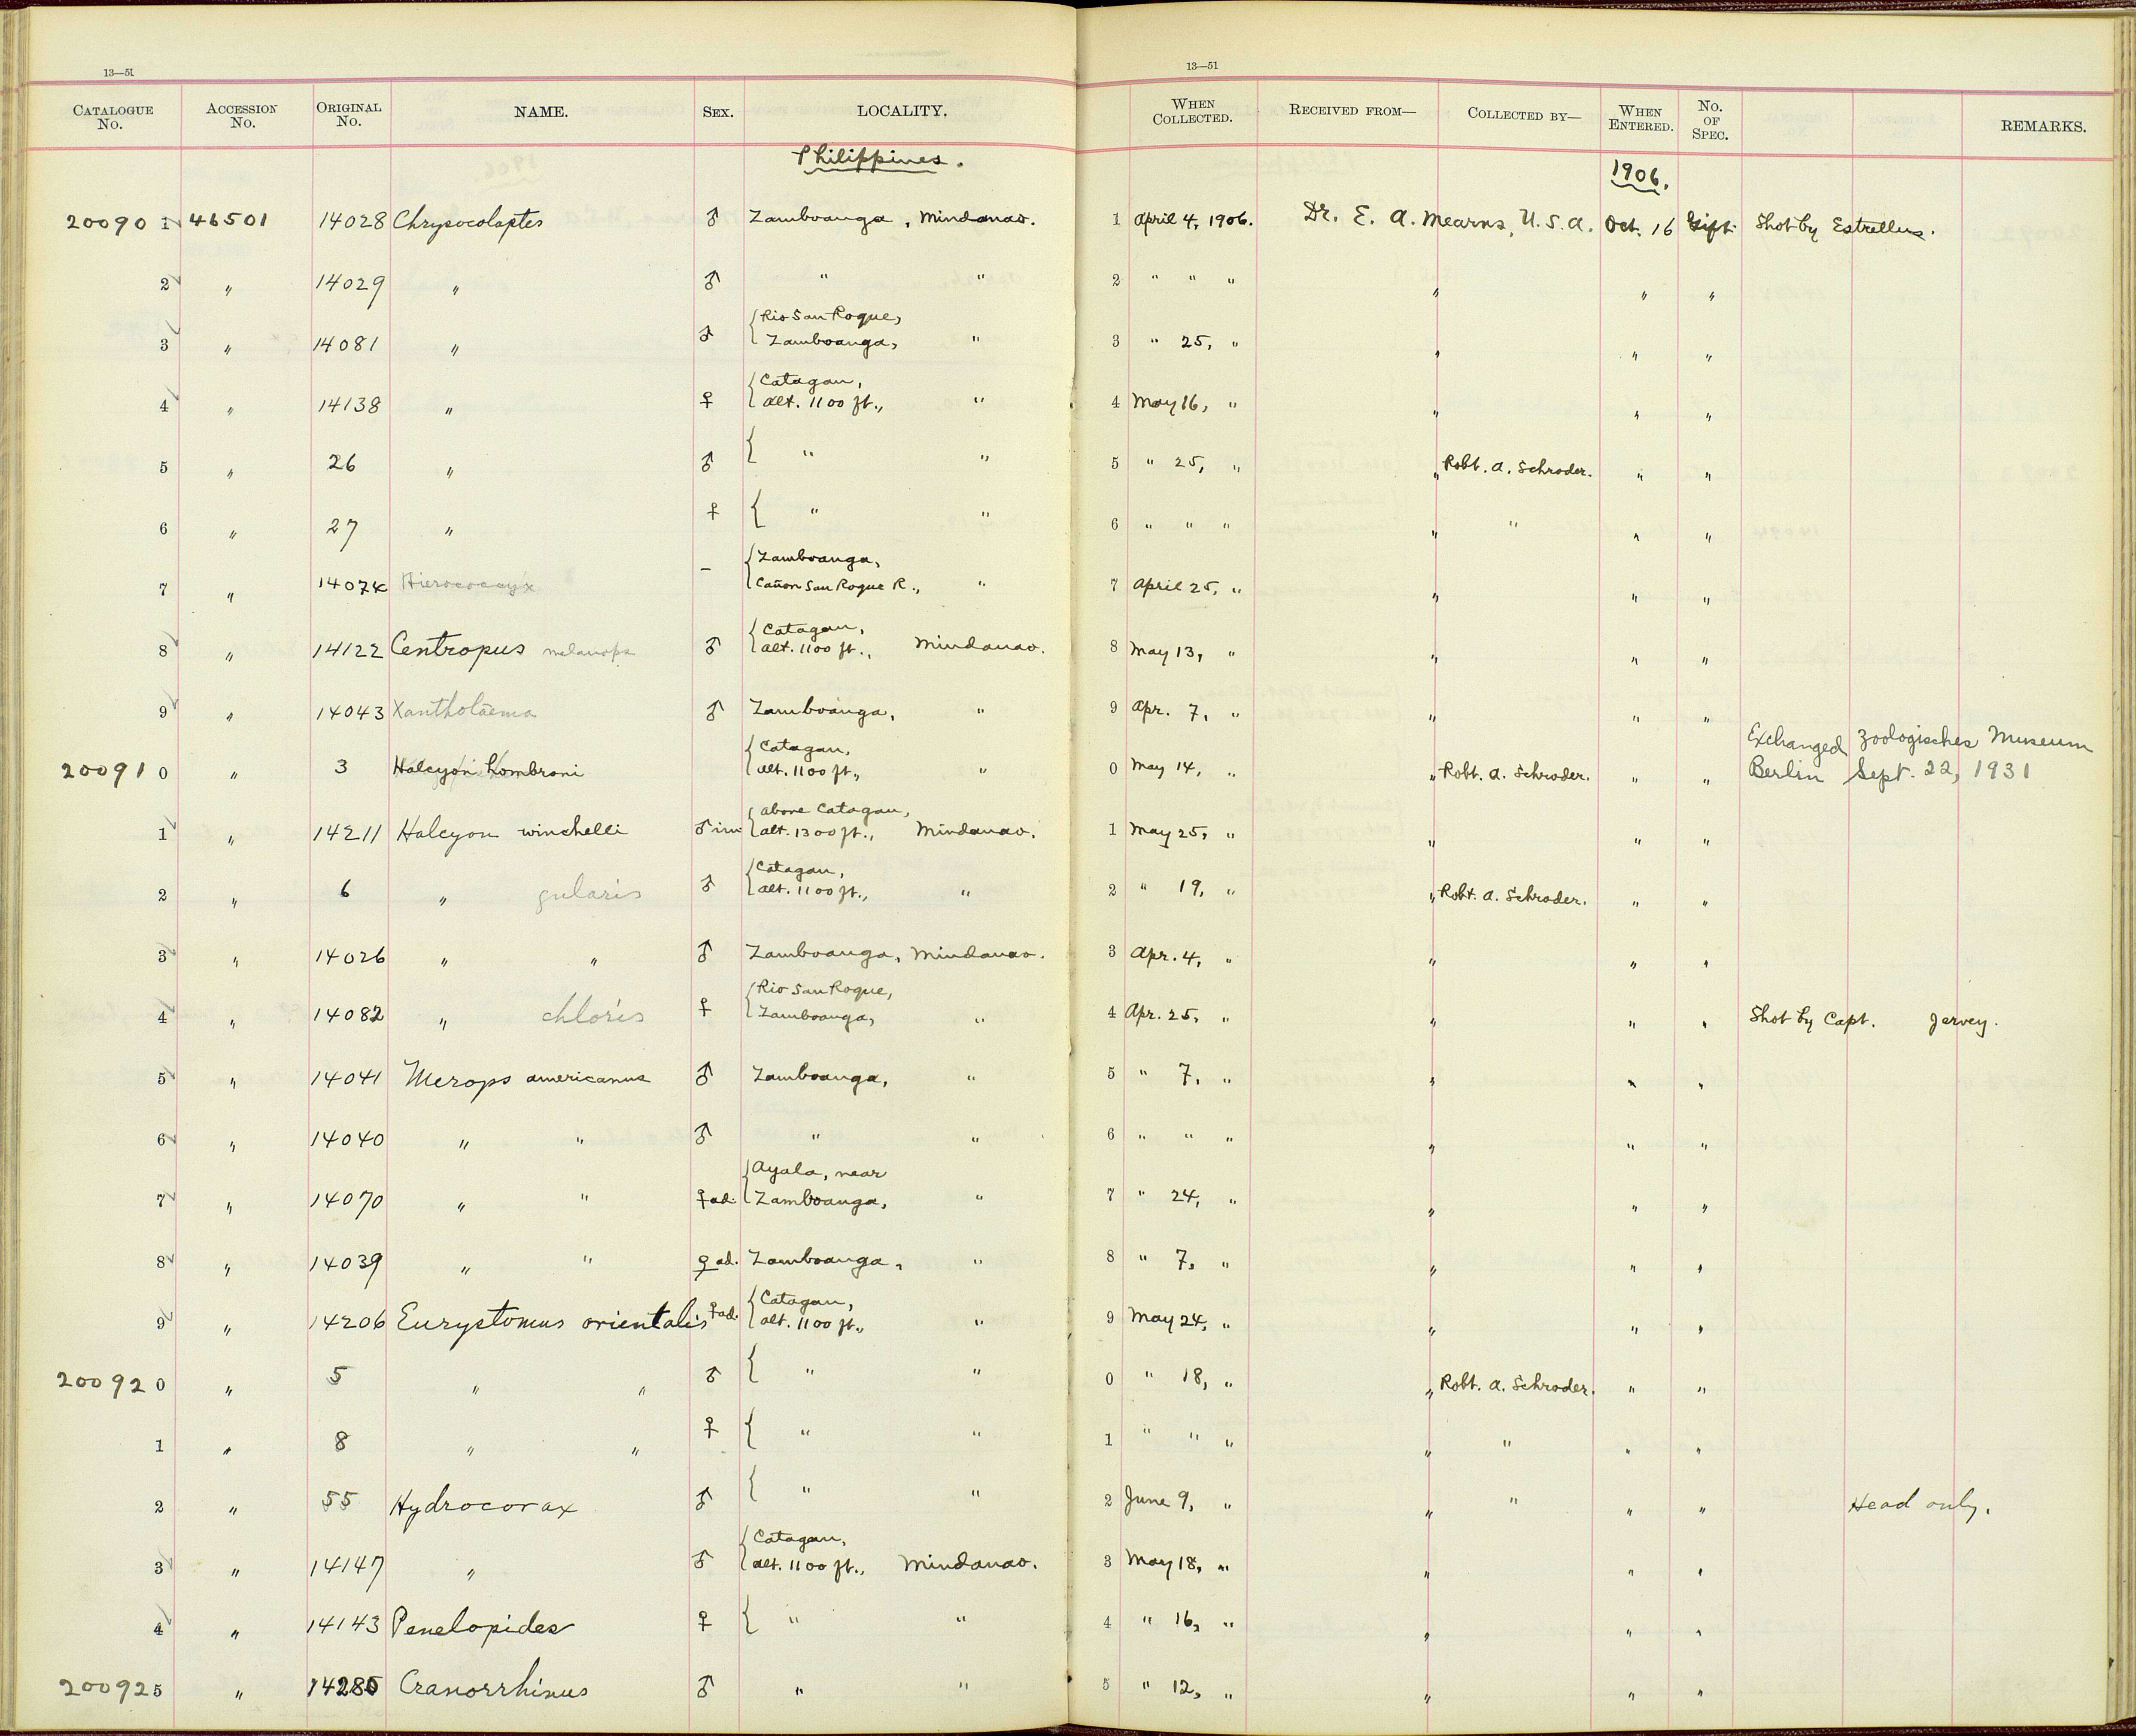 13—51
13—51
CATALOGUE No. ACCESSION No. ORIGINAL No. NAME. SEX. LOCALITY. WHEN COLLECTED. RECEIVED FROM— COLLECTED BY— WHEN ENTERED. No. OF SPEC. REMARKS.
Philippines. 1906.
20090 1 46501 14028 Chrysocolaptes ♂ Zamboanga, Mindanao. 1 April 4, 1906. Dr. E. A. Mearns, U.S.A. Oct. 16 Gift. Shot by
2 " 14029 " ♂ " " 2 " " " " " "
Rio San Roque,
3 " 14081 " ♂ Zamboanga, " 3 " 25, " " " "
Catagan,
4 " 14138 " ♀ alt. 1100 ft., " 4 May 16, " " " "
5 " 26 " ♂ { " " 5 " 25, " " Robt. A. Schroder. " "
6 " 27 " ♀ { " " 6 " " " " " " "
Zamboanga,
7 " 14074 Hierococcyx – Cañon San Roque R., " 7 April 25, " " " "
Catagan,
8 " 14122 Centropus melanops ♂ alt. 1100 ft., Mindanao. 8 May 13, " " " "
9 " 14043 Xantholaema ♂ Zamboanga, " 9 Apr. 7, " " " "
Catagan, Exchanged Zoologisches Museum
20091 0 " 3 Halcyon hombroni alt. 1100 ft., " 0 May 14, " " Robt. A. Schroder. " " Berlin Sept. 22, 1931
above Catagan,
1 " 14211 Halcyon winchelli ♂ im alt. 1300 ft., Mindanao. 1 May 25, " " " "
Catagan,
2 " 6 " gularis ♂ alt. 1100 ft., " 2 " 19, " " Robt. A. Schroder. " "
3 " 14026 " " ♂ Zamboanga, Mindanao. 3 Apr. 4, " " " "
Rio San Roque,
4 " 14082 " chloris ♀ Zamboanga, " 4 Apr. 25, " " " " Shot by Capt. Jervey.
5 " 14041 Merops americanus ♂ Zamboanga, " 5 " 7, " " " "
6 " 14040 " " ♂ " " 6 " " " " " "
Ayala, near
7 " 14070 " " ♀ ad. Zamboanga, " 7 " 24, " " " "
8 " 14039 " " ♀ ad. Zamboanga, " 8 " 7, " " " "
Catagan,
9 " 14206 Eurystomus orientalis ♀ ad. alt. 1100 ft., " 9 May 24, " " " "
20092 0 " 5 " " ♂ { " " 0 " 18, " " Robt. A. Schroder. " "
1 " 8 " " ♀ { " " 1 " " " " " " "
2 " 55 Hydrocorax ♂ { " " 2 June 9, " " " " " Head only.
Catagan,
3 " 14147 " ♂ alt. 1100 ft., Mindanao. 3 May 18, " " " "
4 " 14143 Penelopides ♀ { " " 4 " 16, " " " "
20092 5 " 14285 Cranorrhinus ♂ " " 5 " 12, " " " "